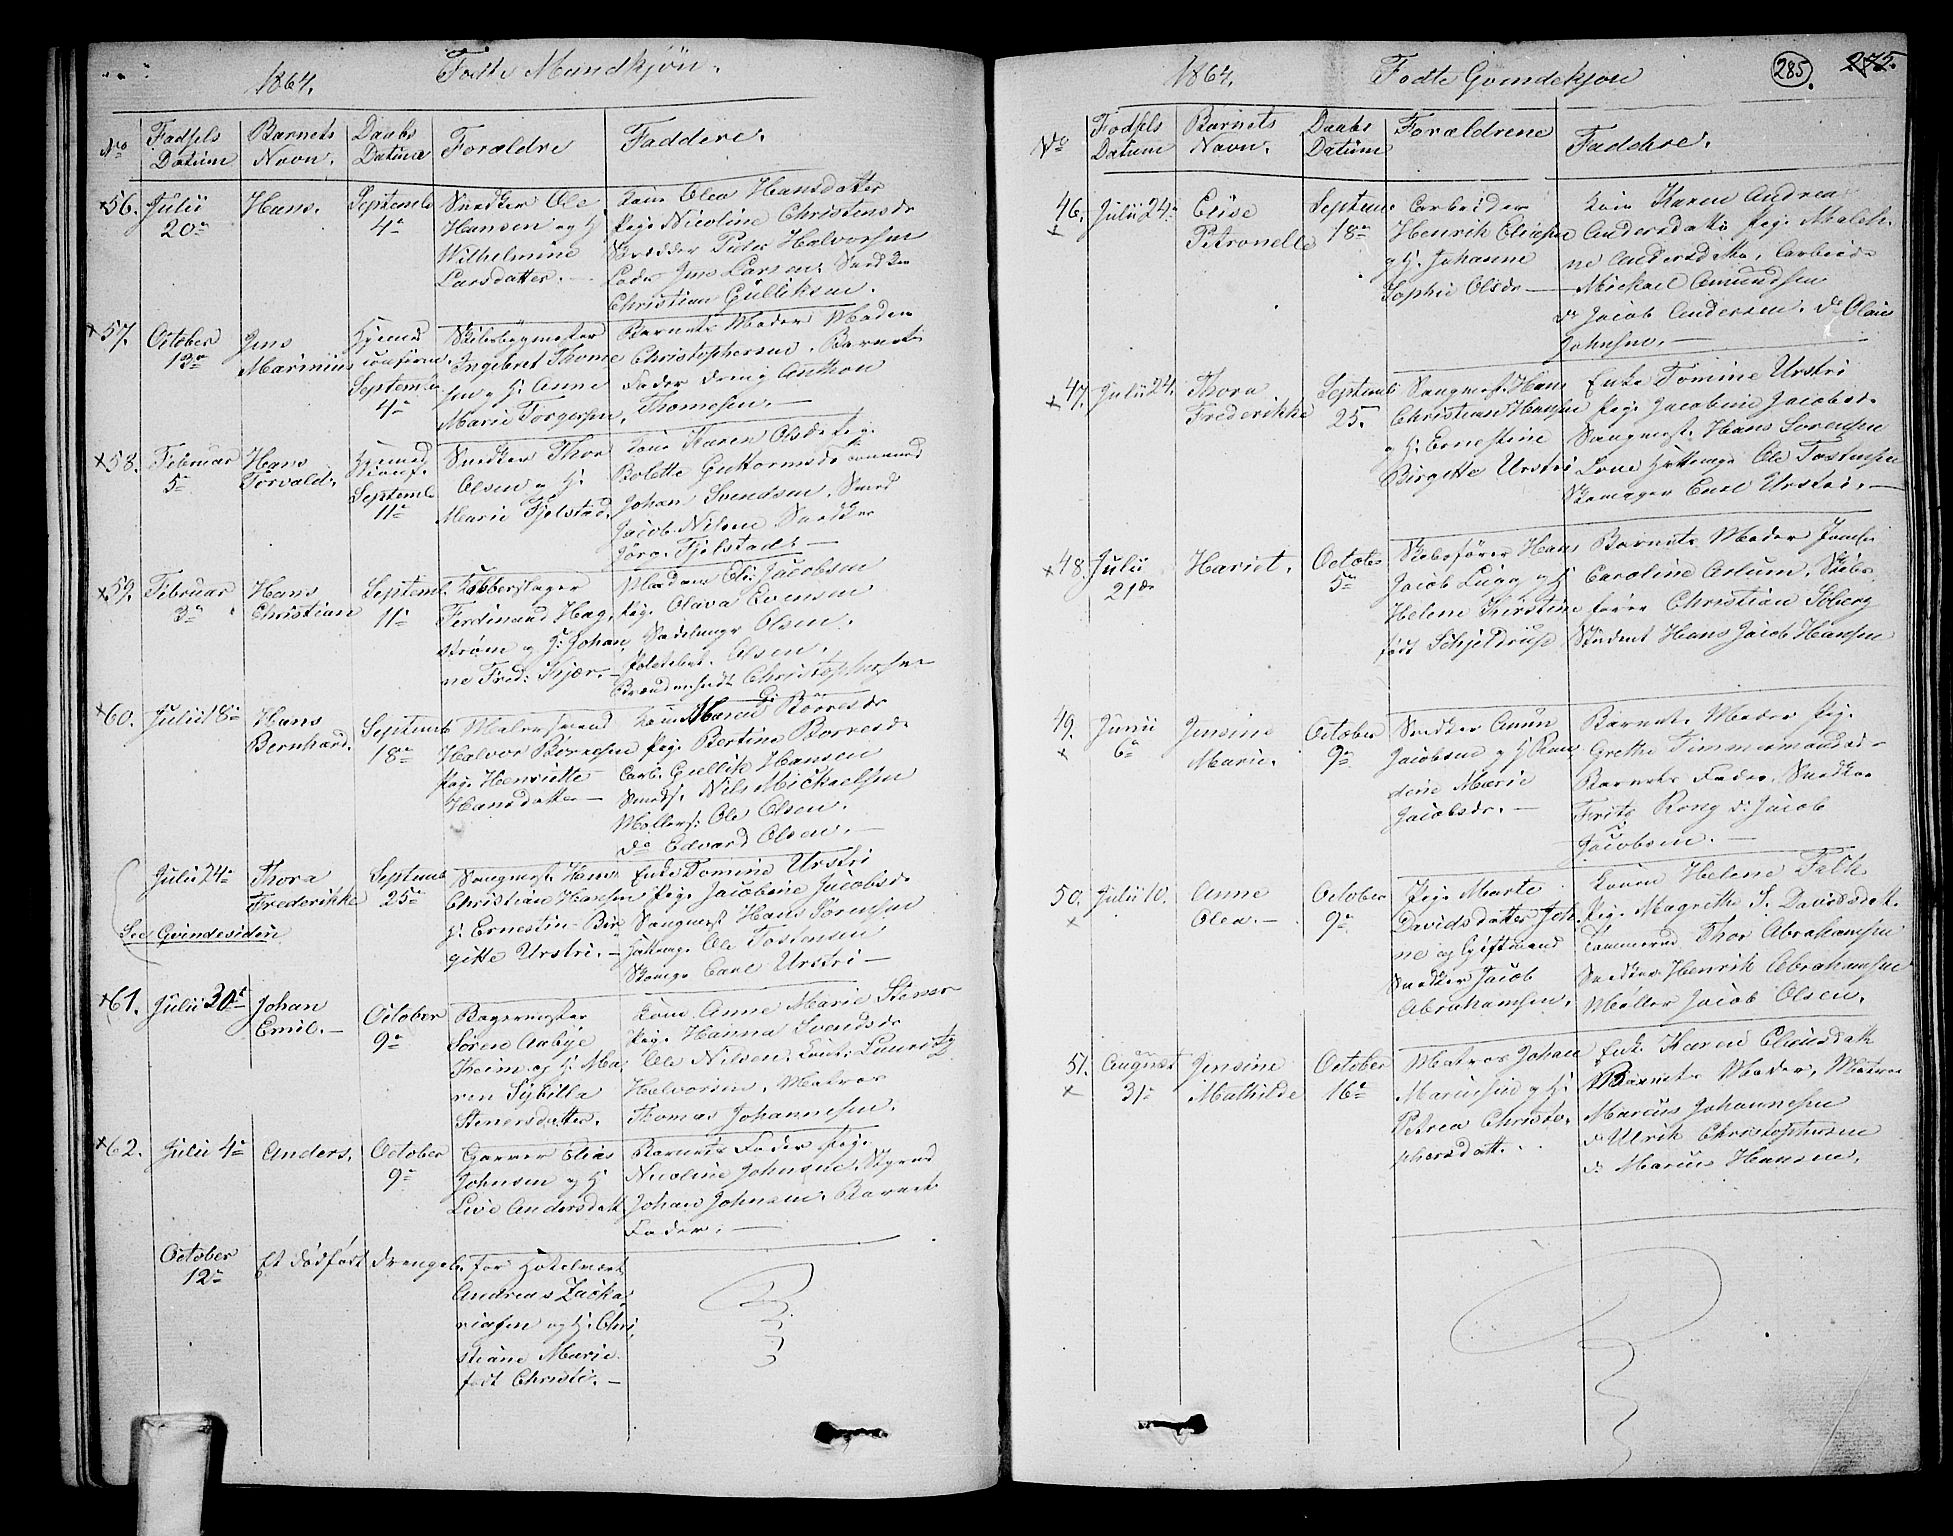 1864. Fødte Mandkjøn.
No Fødsels Datum Barnets Navn. Daabs Datum Forældre Faddere.
56. Julii 20de Hans. Septemb 4de Snedker Ole
Hansen og H.
Wilhelmine
Larsdatter.
Kone Olea Hansdatter
Pige Nicoline Christensdr
Skrædder Peter Halvorsen
Lods Jens Larsen. Snedker
Christian Gulliksen.
57. October 13de Jens
Marinius
Hjemed
confirm.
Septemb
4de
Skibsbygmester
Ingebret Thome
sen og H. Anne
Marie Torgersen.
Barnets Moder Maden
Christophersen. Barnets
Fader Anthon
Thomesen.
58. Februar 5de Hans
Torvald.
Hjemed
Septemb
11te
Snedker Thor
Olsen og H.
Marie Fjelstad.
Kone Karen Olsdr Pige
Bolette Guttormsdr
Johan Svendsen. Smed
Jacob Nilsen Snedker
Jörg. Fjelstad.
59. Februar 3de Hans
Christian
Septemb 11te
Kobberslager
Ferdinand Hag,
strøm og H. Johan
ne Fred: Kjær.
Madam Eli: Jacobsen
Pige Olava Evensen
Sadelmager Olsen.
Politibet. Olsen.
Christophersen
60. Julii 18de Hans
Bernhard.
Septemb
18de
Malersvend
Halvor Børresen
Pige Henriette
Hansdatter
Kone Maren Børresdr
Pige Bertine Børresdr
Carb. Gullik Hansen
Smeds. Nils Mickaelsen
Møllers: Ole Olsen.
do Edvard Olsen.
Julii 24de Thora
Frederikke
See Qvindesiden
Septemb
25de
Sangmest. Hans
Christian Hansen
H. Ernestine Bir
gitte Urstri.
Enke Tomine Urstri
Pige Jacobine Jacobsdr
Sangmest Hans Sörensen
Ole Tostensen
Skomag. Carl Urstri
61. Julii 30te Johan
Emil.
October
9de
Bagermester
Sören Aabye
Keim og H. Ma
ren Sybilla
Stenersdatter.
Kone Anne Marie Stener
Pige Hanna Svendsdr
Ole Nilsen. Lauritz
Halvorsen. Matros
Thomas Johannesen.
62. Julii 4de Anders. October
9de
Garver Elias
Johnsen og H.
Live Andersdatt
Barnets Fader Pige
Nicoline Johnsen. Styrmd
Johan Johnsen. Barnets
Fader.
October
12te
Et dödfödt Drengeb. for Hotelvært
Andreas Zacka
riasen og H. Chri
stiane Marie
født Christi.
1864. Fødte Qvindekjøn 285. 275.
No Fødsels Datum Barnets Navn. Daabs Datum Forældrene Faddere.
46. Julii 24de Elise
Petronelle
Septemb
18de
Arbeider
Henrik Eliasen
og H. Johanne
Sophie Olsdr
Kone Karen Andrea
Andersdatter Pige Malch
ne Andersdatter, Arbeider
Mickael Amundsen
do Jacob Andersen. do Olaus
Johnsen.
47. Julii 24. Thora
Frederikke
Septemb
25.
Sangmest. Hans
Christian Hansen
og H. Ernestine
Birgitte Urstri
Enke Tomine Urstri
Pige Jacobine Jacobsdr
Sangmest. Hans Sorensen
Ole Tostensen
Skomager Carl Urstri.
48. Julii 21de Hariet. October
5te
Skibsfører Hans
Jacob Lugg og H.
Helene Kirstine
født Schjeldrup
Barnets Moder
Caroline Aslum. Skibs
fører Christian Söberg
Student Hans Jacob Hansen
49. Junii
6te
Jensine
Marie.
October
9de
Snedker Amun
Jacobsen og H.
dine Marie
Jacobsdr.
Barnets Moder Pige
Grethe Timmermandsdr
Barnets Fader. Snedker
Frits Rong do Jacob
Jacobsen.
50. Julii 10. Anne
Olea.
October
9de
Pige Marte
Davidsdatter
og Giftmand
Snedker Jacob
Abrahamsen.
Konen Helene Falk
Pige Magrethe S. Davidsdatt.
Tømmermd Thor Abrahamsen
Snedker Henrik Abrahamsen
Møller Jacob Olsen.
51. August
31te
Jensine
Mathilde
October
16de
Matros Johan
Mariusen og H.
Petrea Christo,
phersdatt.
Enke Karen Clausdatt
Barnets Moder, Matros
Marcus Johannesen
do Ulrik Christophersen
do Marius Hansen.